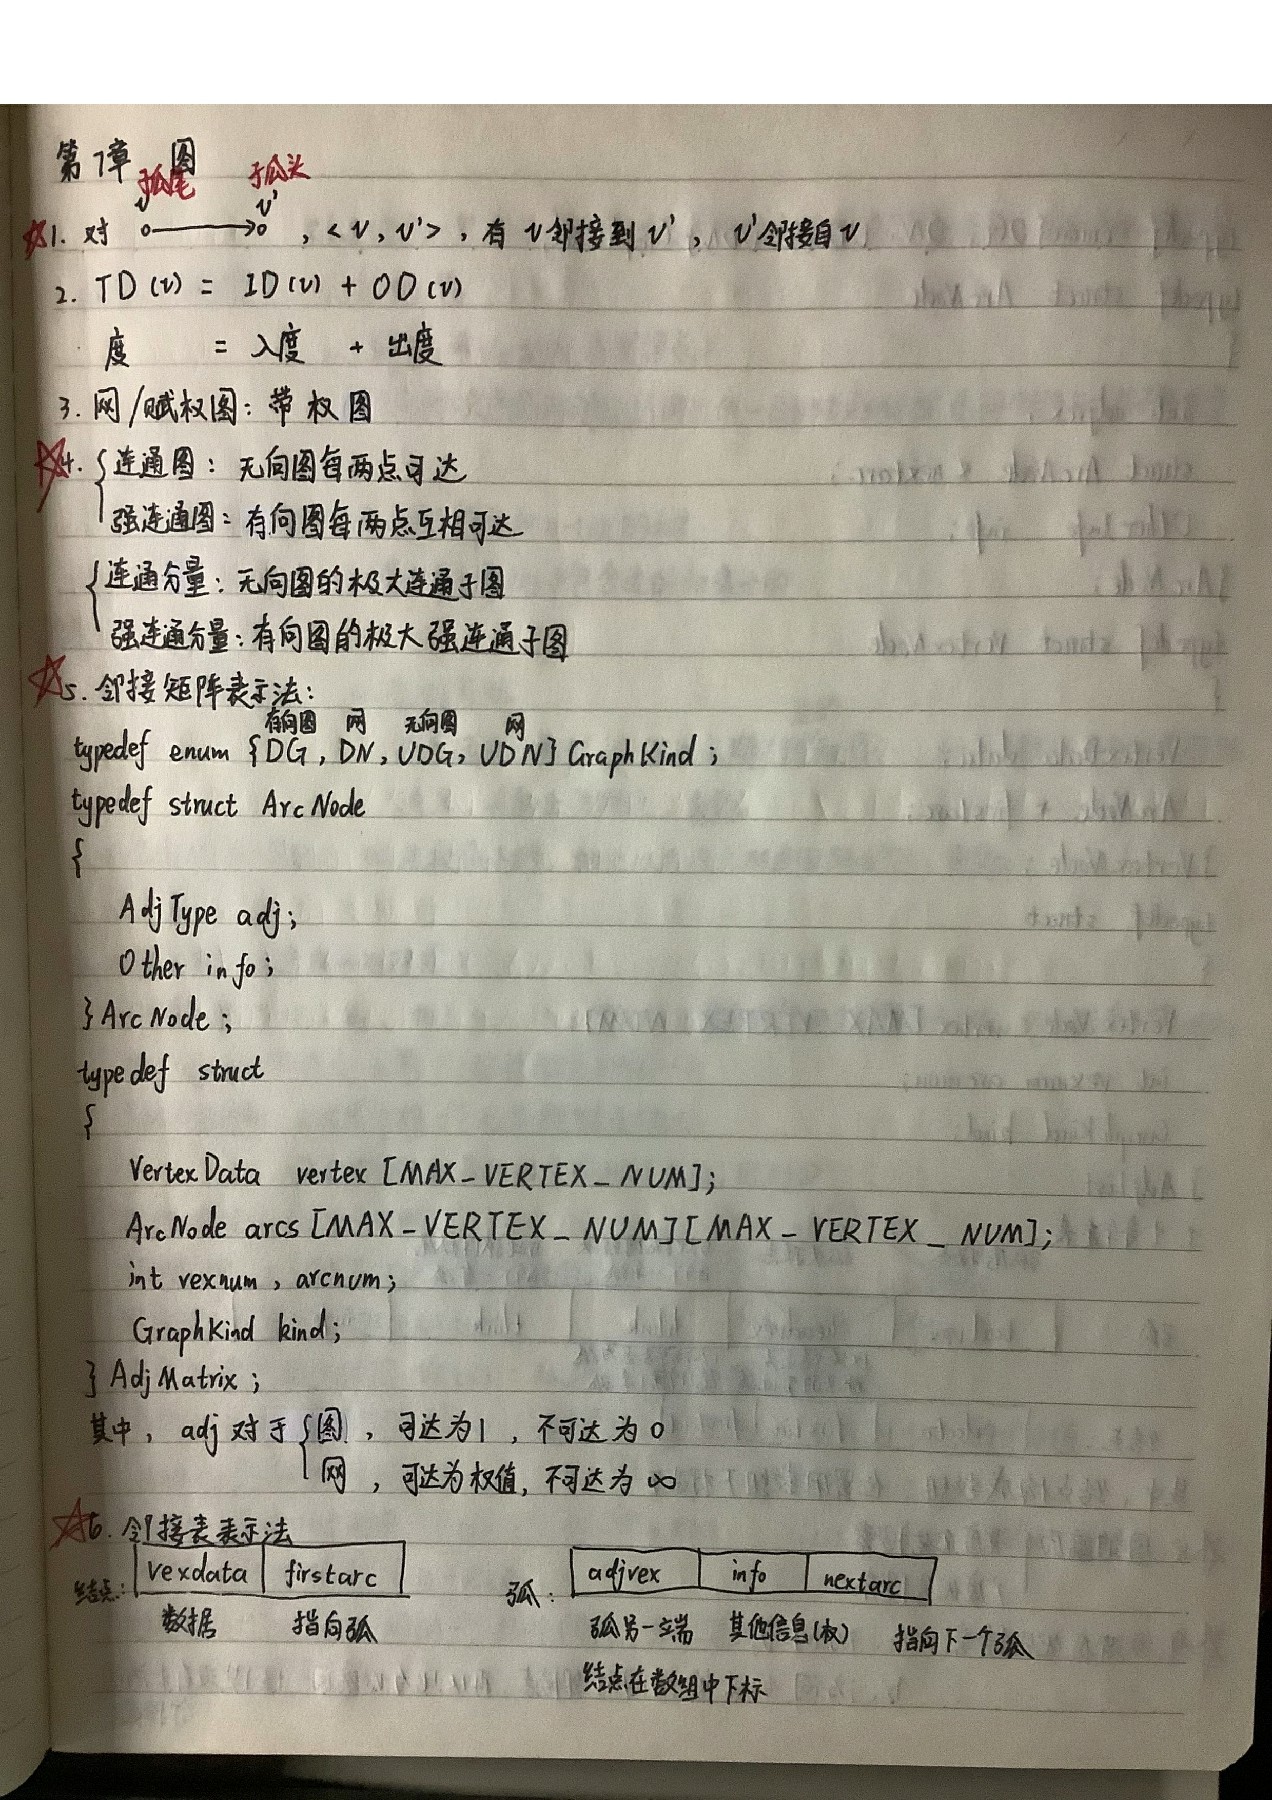 第7章 图
弧尾 弧头
v v'
☆1. 对 o→o , <v, v'>, 有 v 邻接到 v', v' 邻接自 v
2. TD(v) = ID(v) + OD(v)
度 = 入度 + 出度
3. 网/赋权图: 带权图
☆4. { 连通图: 无向图每两点可达
强连通图: 有向图每两点互相可达
{ 连通分量: 无向图的极大连通子图
强连通分量: 有向图的极大强连通子图
☆5. 邻接矩阵表示法:
有向图 网 无向图 网
typedef enum {DG, DN, UDG, UDN} GraphKind;
typedef struct ArcNode
{
AdjType adj;
Other info;
} ArcNode;
typedef struct
{
VertexData vertex [MAX_VERTEX_NUM];
ArcNode arcs [MAX_VERTEX_NUM][MAX_VERTEX_NUM];
int vexnum, arcnum;
GraphKind kind;
} AdjMatrix;
其中, adj 对于 { 图, 可达为1, 不可达为0
网, 可达为权值, 不可达为∞
☆6. 邻接表表示法
结点: vexdata firstarc 弧: adjvex info nextarc
数据 指向弧 弧另一端 其他信息(权) 指向下一个弧
结点在数组中下标